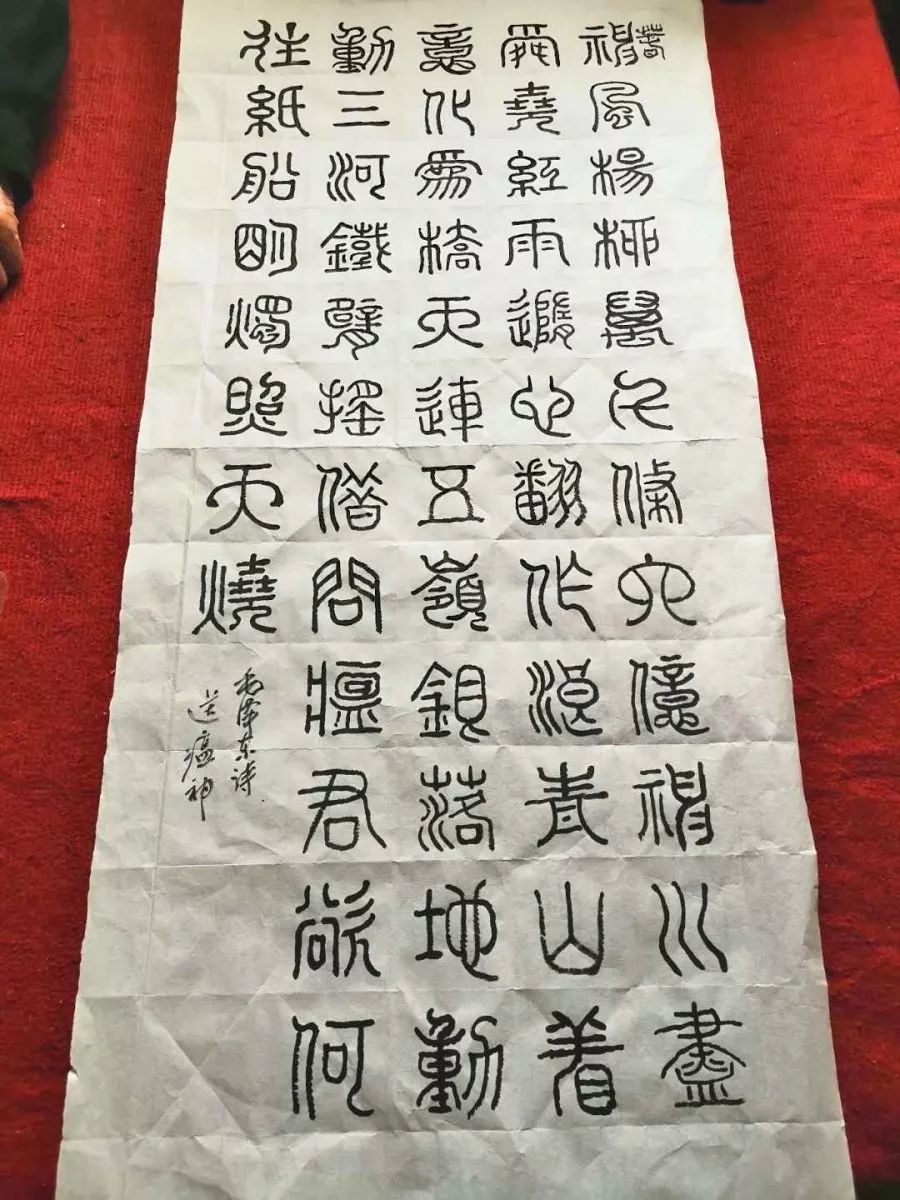 春風楊柳萬千條六億神川盡
舜堯紅雨隨心翻作浪青山着
意化為橋天連五嶺銀落地動
動三河鐵臂搖借問瘟君欲何
往紙船明燭照天燒
毛泽东诗
送瘟神